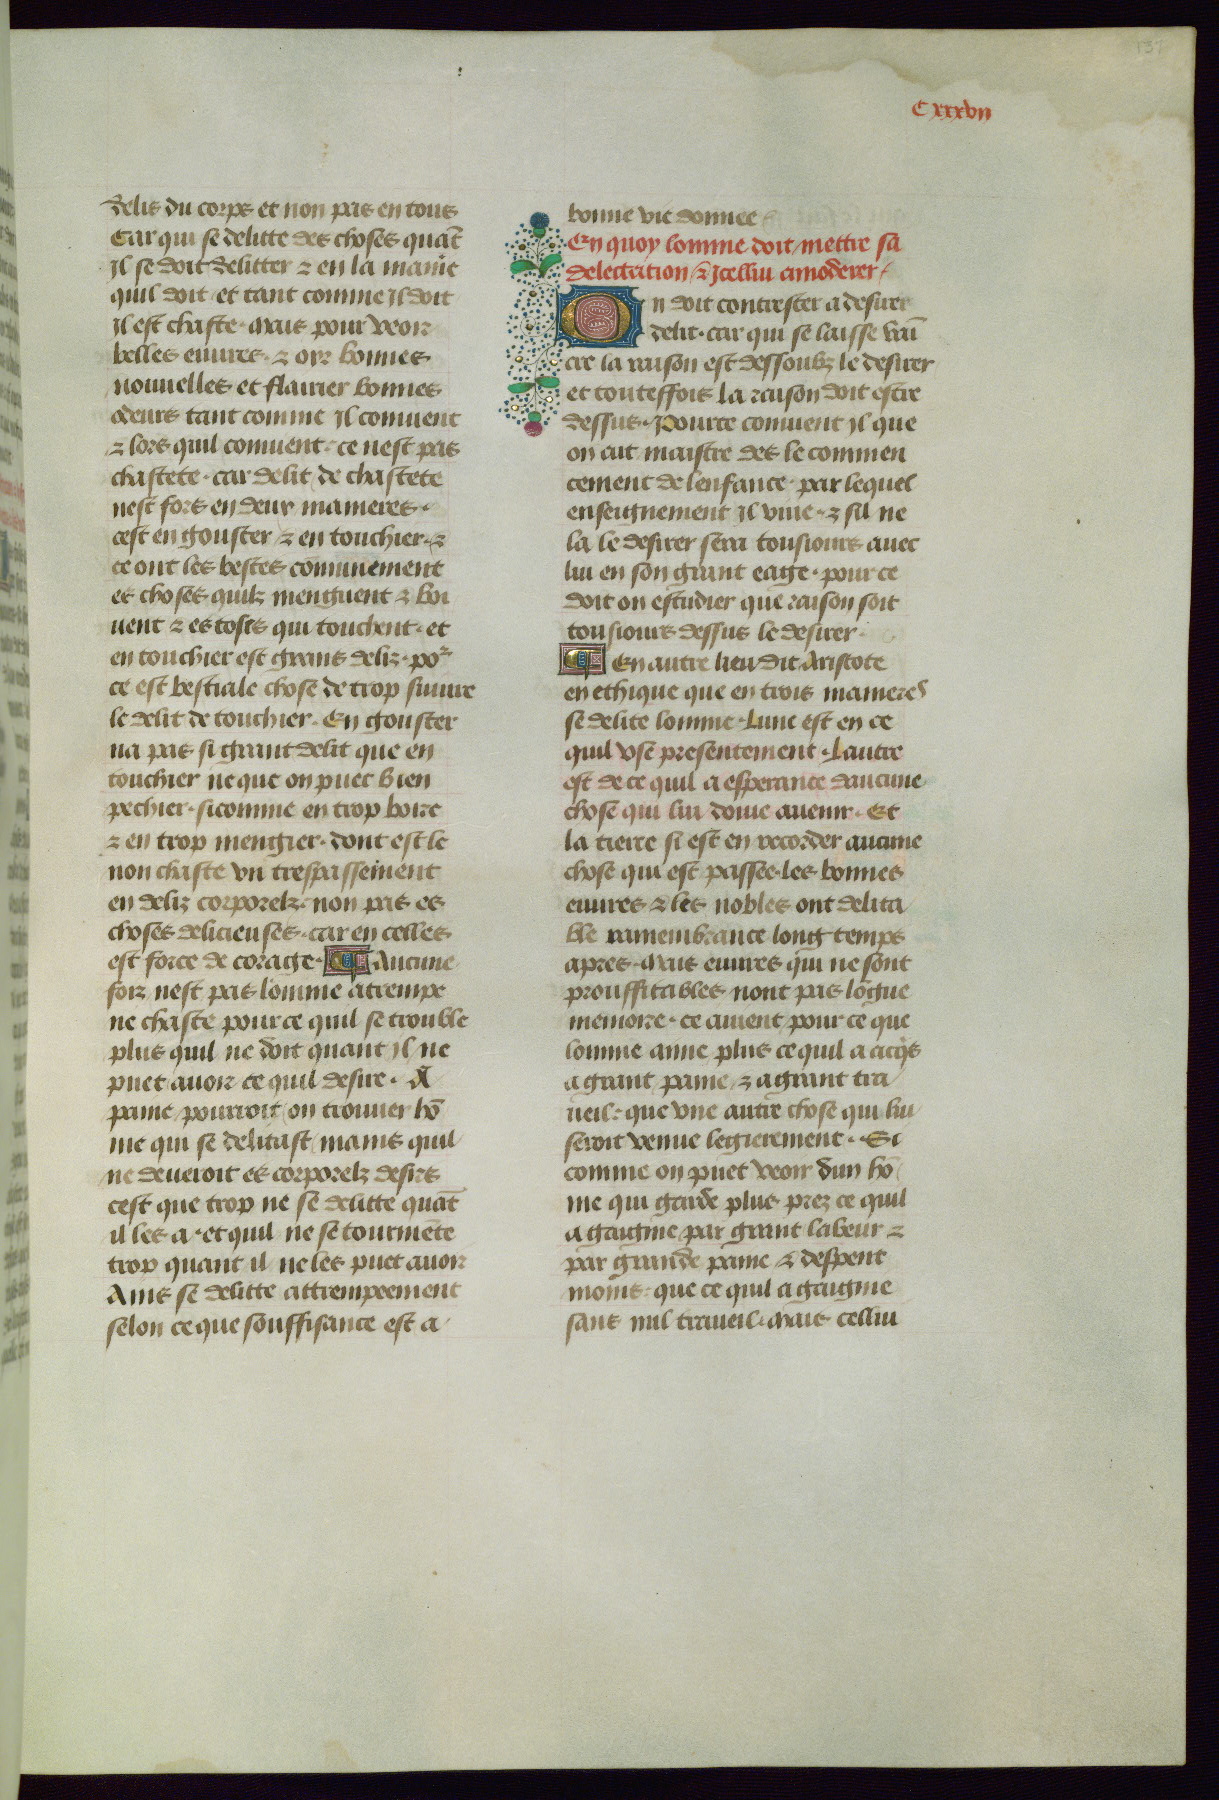 137
Cxxxvii
delis du corps et non pas en tous
Car qui se delitte des choses quāt
Il se doit delitter ⁊ en la manie
quil doit et tant comme il doit
il est chaste. Mais pour veoir
belles euures. ⁊ oir bonnes
nouuelles et flairier bonnes
odeurs tant comme Il conuient
⁊ lors quil conuient. ce nest pas
chastete. car delit de chastete
nest fors en deux manieres.
cest en gouster ⁊ en touchier. ⁊
ce ont les bestes cōmunement
es choses quilz menguent ⁊ boi
uent ⁊ es toses qui touchent. et
en touchier est grans deliz. por
ce est bestiale chose de trop siuure
le delit de touchier. En gouster
na pas si grant delit que en
touchier ne que on puet bien
pechier. sicomme en trop boire
⁊ en trop mengier. dont est le
non chaste vn trespassement
en deliz corporelz. non pas es
choses delicieuses. car en celles
est force de corage. Aucune
foiz nest pas lomme atrempe
ne chaste pour ce quil se trouble
plus quil ne doit quant il ne
puet auoir ce quil desire. A
paine pourroit on trouuer hō
me qui se delitast mains quil
ne deueroit es corporelz desirs
cest que trop ne se delitte quāt
il les a. et quil ne se tourmēte
trop quant il ne les puet auoir
Ains se delitte attrempeement
selon ce que souffisance est a
bonne vie donnee
En quoy lomme doit mettre sa
delectation ⁊ Icellui amoderer
On doit contrester a desirer
delit. car qui se laisse vaī
cre la raison est dessoubz le desirer
et touteffois la raison doit estre
dessus. Pource conuient Il que
on ait maistre des le commen
cement de lenfance. par lequel
enseignement il viue. ⁊ sil ne
la le desirer sera tousiours auec
lui en son grant eage. pour ce
doit on estudier que raison soit
tousiours dessus le desirer.
En autre lieu dit Aristote
en ethique que en trois manieres
se delite lomme. Lune est en ce
quil vse presentement. Lautre
est de ce quil a esperance daucune
chose qui lui doiue auenir. Et
la tierce si est en recorder aucune
chose qui est passee. les bonnes
euures ⁊ les nobles ont delita
ble ramembrance long temps
apres. Mais euures qui ne sont
prouffitables nont pas lōgue
memoire. ce auient pour ce que
lomme aime plus ce quil a acq̄s
a grant paine ⁊ a grant tra
ueil. que vne autre chose qui lui
seroit venue legierement. Si
comme on puet veoir dun hō
me qui garde plus prez ce quil
a gaignie par grant labeur ⁊
par grande paine ⁊ despent
moins. que ce quil a gaignie
sans nul traueil. Mais cellui